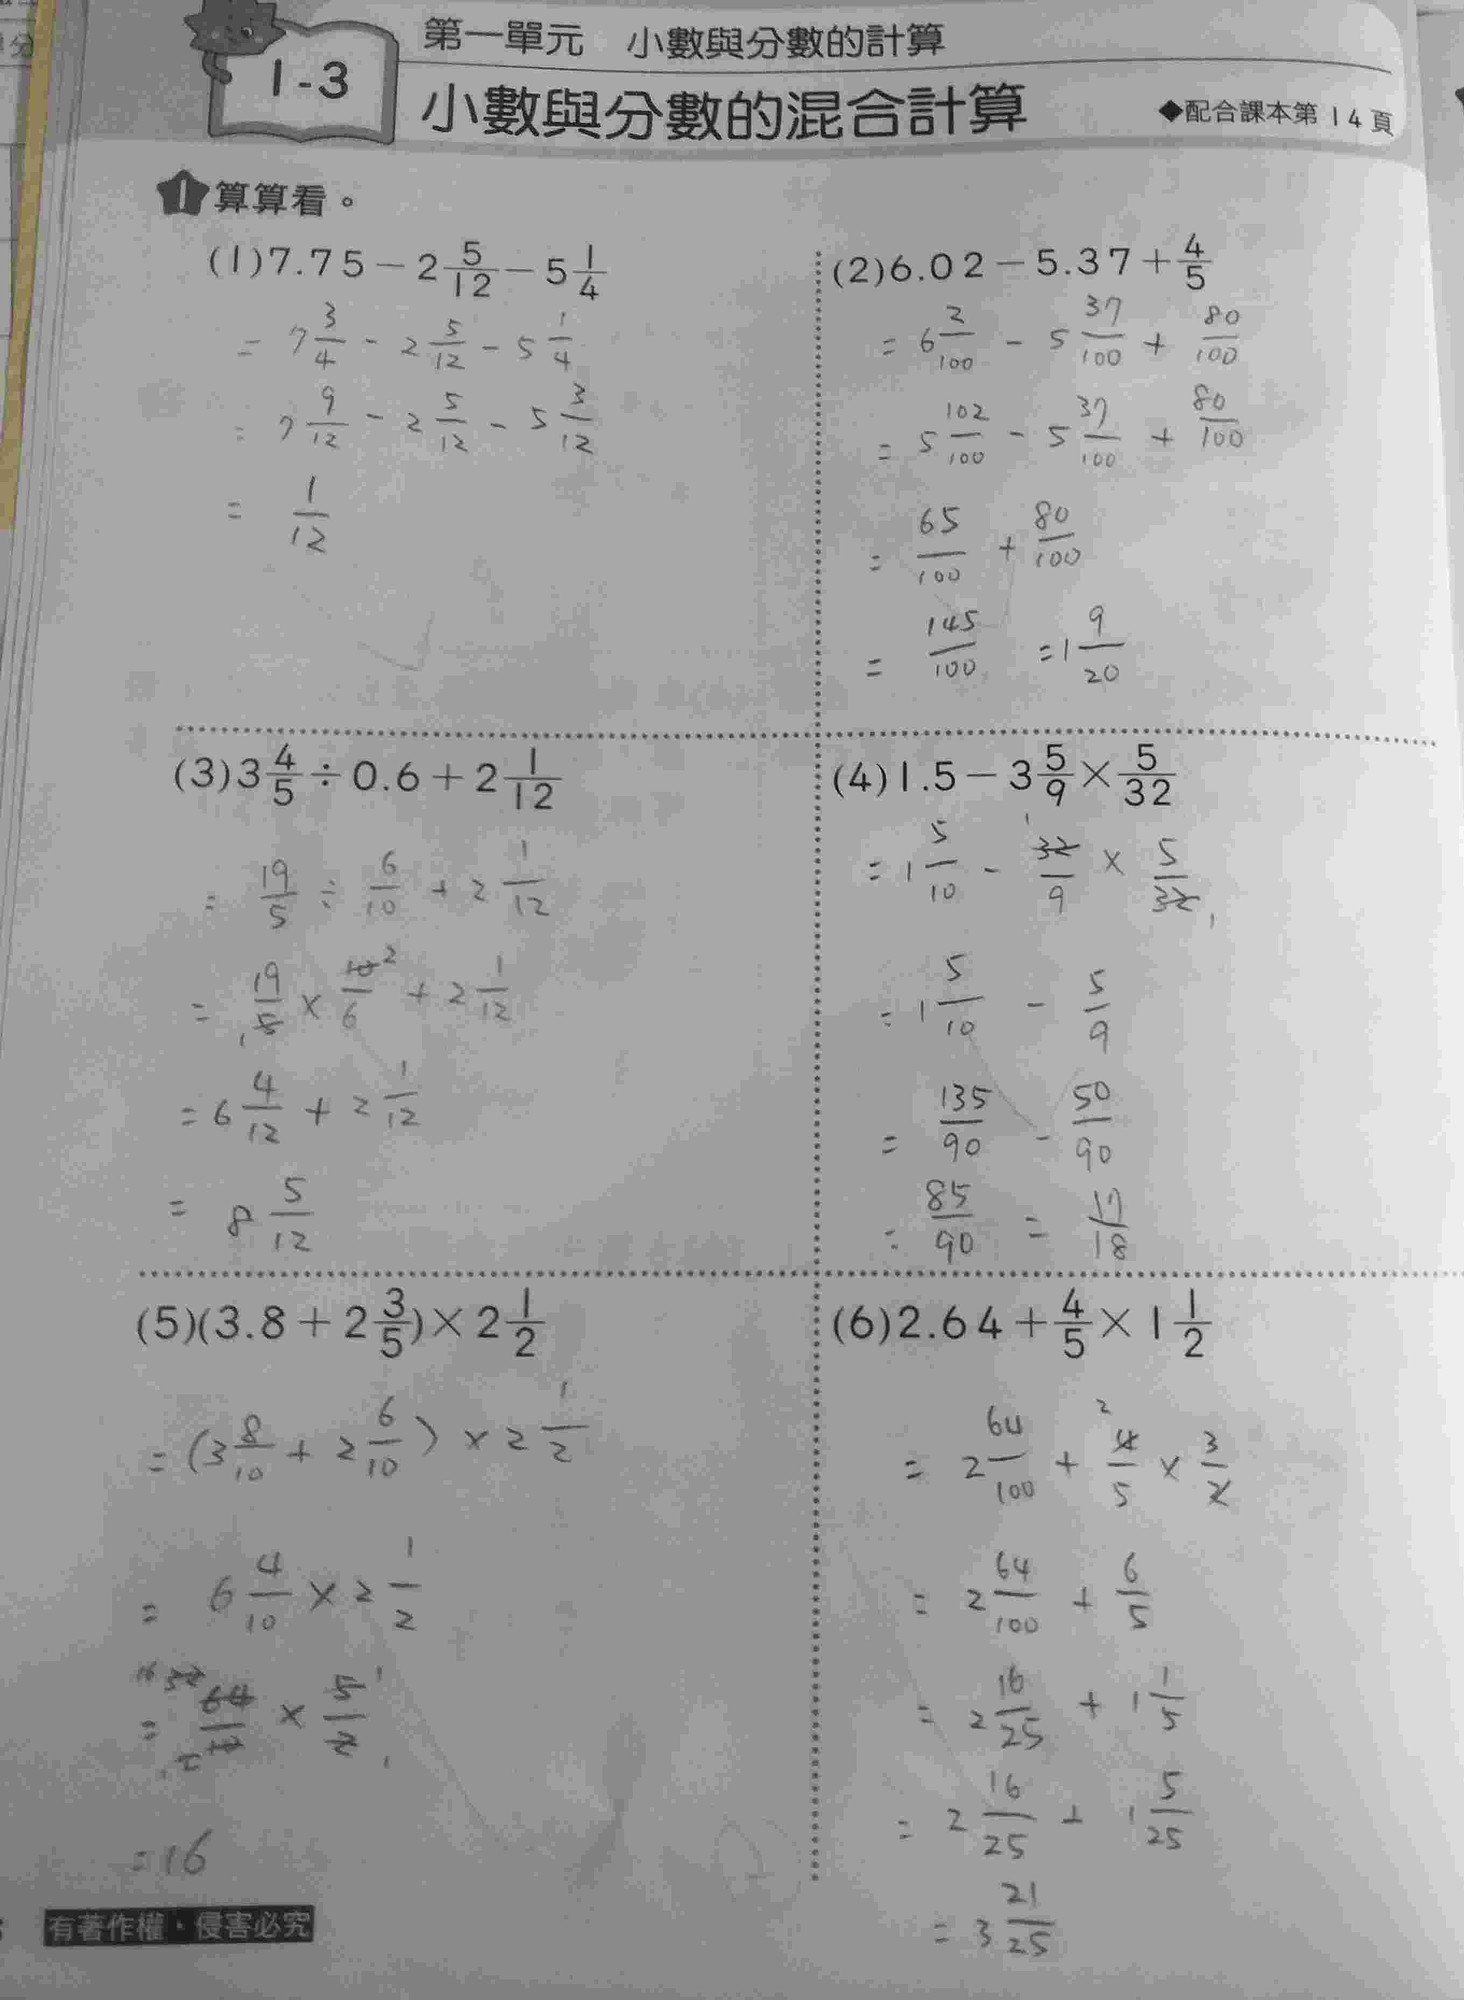 第一單元 小數與分數的計算
1-3
小數與分數的混合計算 ◆配合課本第14頁
1 算算看。
(1)7.75－2 5/12－5 1/4
= 7 3/4 - 2 5/12 - 5 1/4
= 7 9/12 - 2 5/12 - 5 3/12
= 1/12
(2)6.02－5.37＋4/5
= 6 2/100 - 5 37/100 + 80/100
= 5 102/100 - 5 37/100 + 80/100
= 65/100 + 80/100
= 145/100 = 1 9/20
(3)3 4/5÷0.6＋2 1/12
= 19/5 ÷ 6/10 + 2 1/12
= 19/5 × 10/6 + 2 1/12
= 6 4/12 + 2 1/12
= 8 5/12
(4)1.5－3 5/9×5/32
= 1 5/10 - 32/9 × 5/32
= 1 5/10 - 5/9
= 135/90 - 50/90
= 85/90 = 17/18
(5)(3.8＋2 3/5)×2 1/2
= (3 8/10 + 2 6/10) × 2 1/2
= 6 4/10 × 2 1/2
= 64/10 × 5/2
= 16
(6)2.64＋4/5×1 1/2
= 2 64/100 + 4/5 × 3/2
= 2 64/100 + 6/5
= 2 16/25 + 1 1/5
= 2 16/25 + 1 5/25
= 3 21/25
有著作權・侵害必究